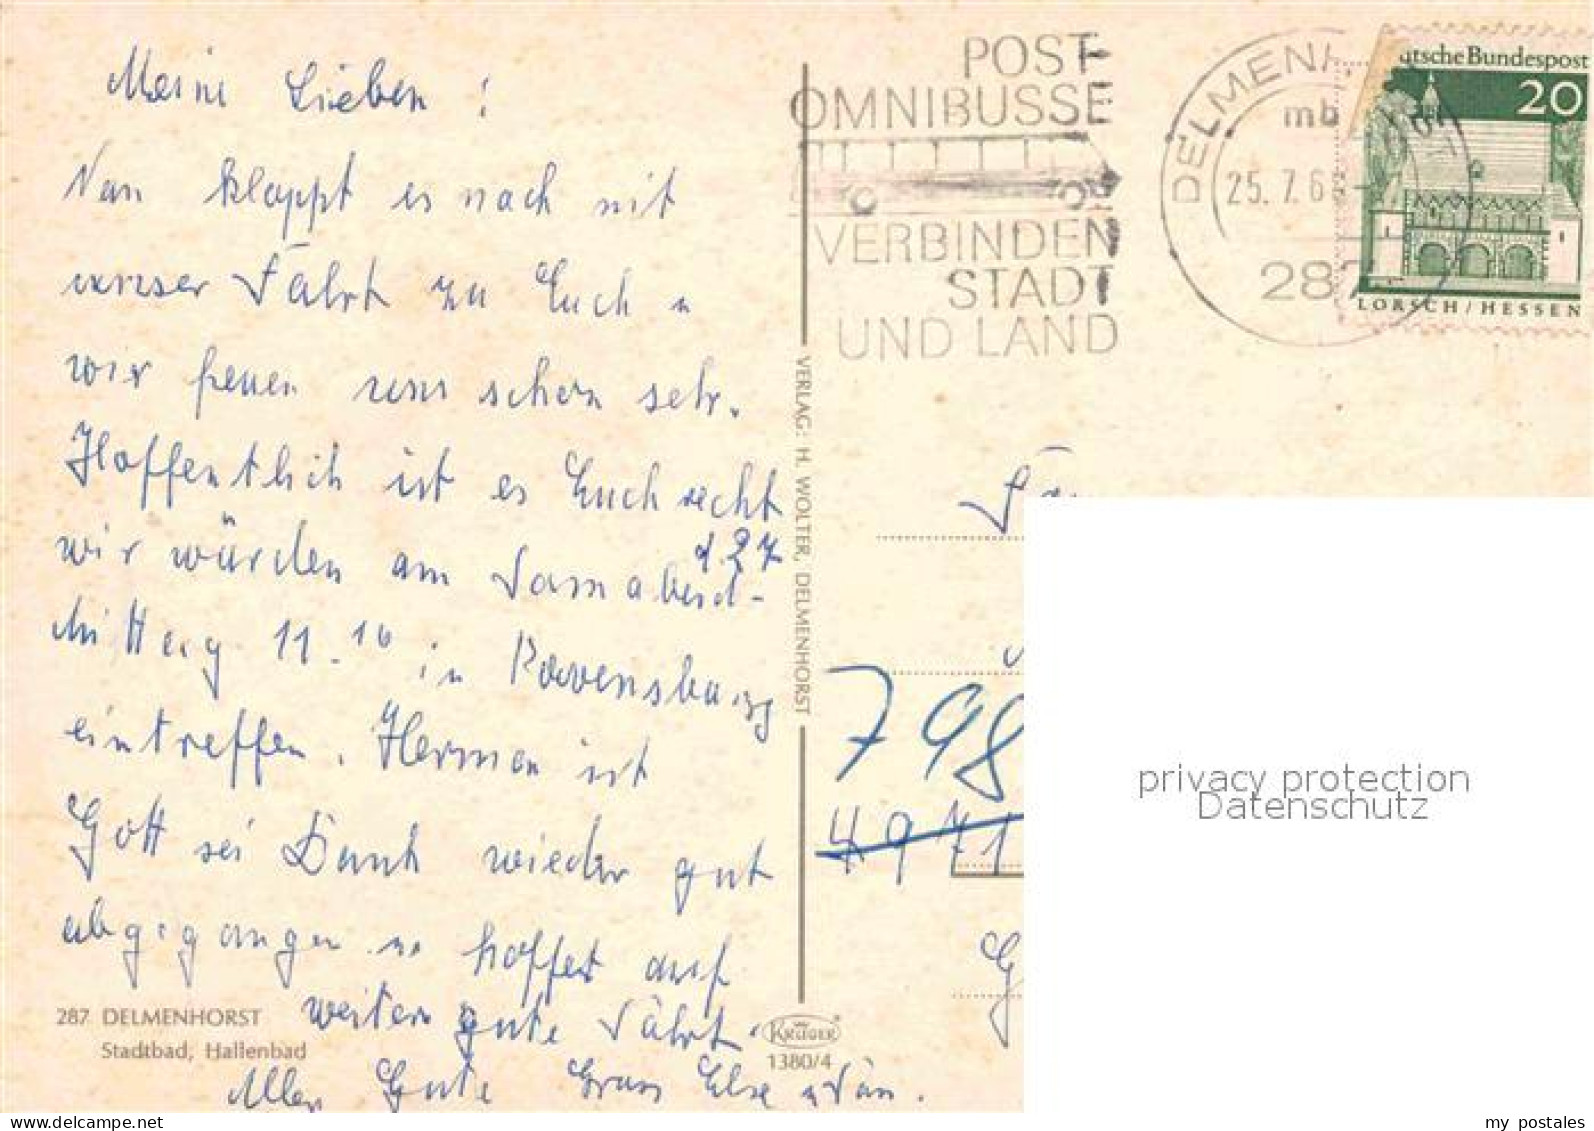 Meine Lieben!
Nun klappt es noch mit
unser Fahrt zu Euch u
wir freuen uns schon sehr.
Hoffentlich ist es Euch recht
wir würden am Sonnabend- d. 27
Mittag 11.10 in Ravensburg
eintreffen. Herman ist
Gott sei Dank wieder gut
abgegangen u hoffet auf
weitere gute Fahrt.
Alles Gute Gruss Else u
287 DELMENHORST
Stadtbad, Hallenbad
VERLAG: H. WOLTER, DELMENHORST
KRÜGER
1380/4
POST-
OMNIBUSSE
VERBINDEN
STADT
UND LAND
DELMENH
mb
25.7.6
287
utsche Bundespost
20
LORSCH/HESSEN
798
privacy protection
Datenschutz
my postales
delcampe.net